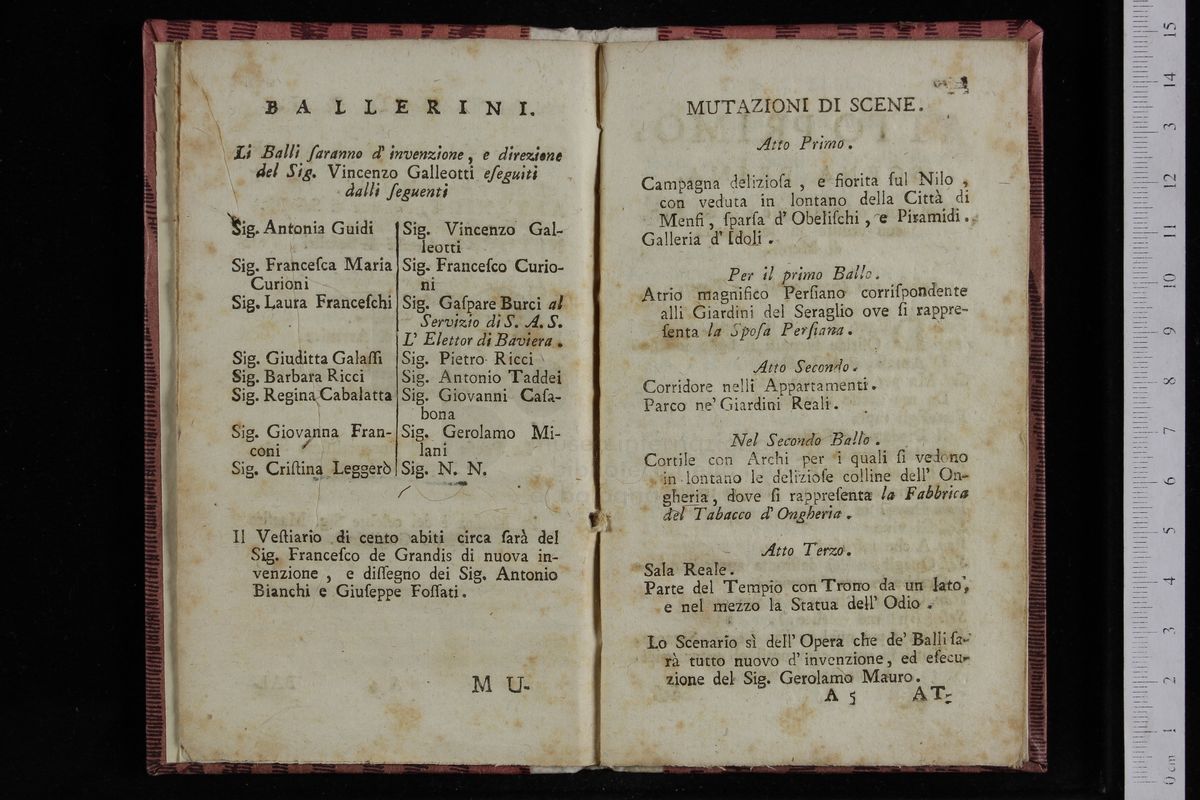 BALLERINI.
Li Balli ſaranno d' invenzione, e direzione
del Sig. Vincenzo Galleotti eſeguiti
dalli ſeguenti
Sig. Antonia Guidi
Sig. Franceſca Maria
Curioni
Sig. Laura Franceſchi
Sig. Giuditta Galaſſi
Sig. Barbara Ricci
Sig. Regina Cabalatta
Sig. Giovanna Fran-
coni
Sig. Criſtina Leggerò
Sig. Vincenzo Gal-
leotti
Sig. Franceſco Curio-
ni
Sig. Gaſpare Burci al
Servizio di S. A. S.
L' Elettor di Baviera.
Sig. Pietro Ricci
Sig. Antonio Taddei
Sig. Giovanni Caſa-
bona
Sig. Gerolamo Mi-
lani
Sig. N. N.
Il Veſtiario di cento abiti circa ſarà del
Sig. Franceſco de Grandis di nuova in-
venzione, e diſſegno dei Sig. Antonio
Bianchi e Giuſeppe Foſſati.
MU-
MUTAZIONI DI SCENE.
Atto Primo.
Campagna delizioſa, e fiorita ſul Nilo,
con veduta in lontano della Città di
Menfi, ſparſa d' Obeliſchi, e Piramidi.
Galleria d' Idoli.
Per il primo Ballo.
Atrio magnifico Perſiano corriſpondente
alli Giardini del Seraglio ove ſi rappre-
ſenta la Spoſa Perſiana.
Atto Secondo.
Corridore nelli Appartamenti.
Parco ne' Giardini Reali.
Nel Secondo Ballo.
Cortile con Archi per i quali ſi vedono
in lontano le delizioſe colline dell' On-
gheria, dove ſi rappreſenta la Fabbrica
del Tabacco d' Ongheria.
Atto Terzo.
Sala Reale.
Parte del Tempio con Trono da un lato,
e nel mezzo la Statua dell' Odio.
Lo Scenario sì dell' Opera che de' Balli ſa-
rà tutto nuovo d' invenzione, ed eſecu-
zione del Sig. Gerolamo Mauro.
A 5 AT-
0 cm 1 2 3 4 5 6 7 8 9 10 11 12 13 14 15